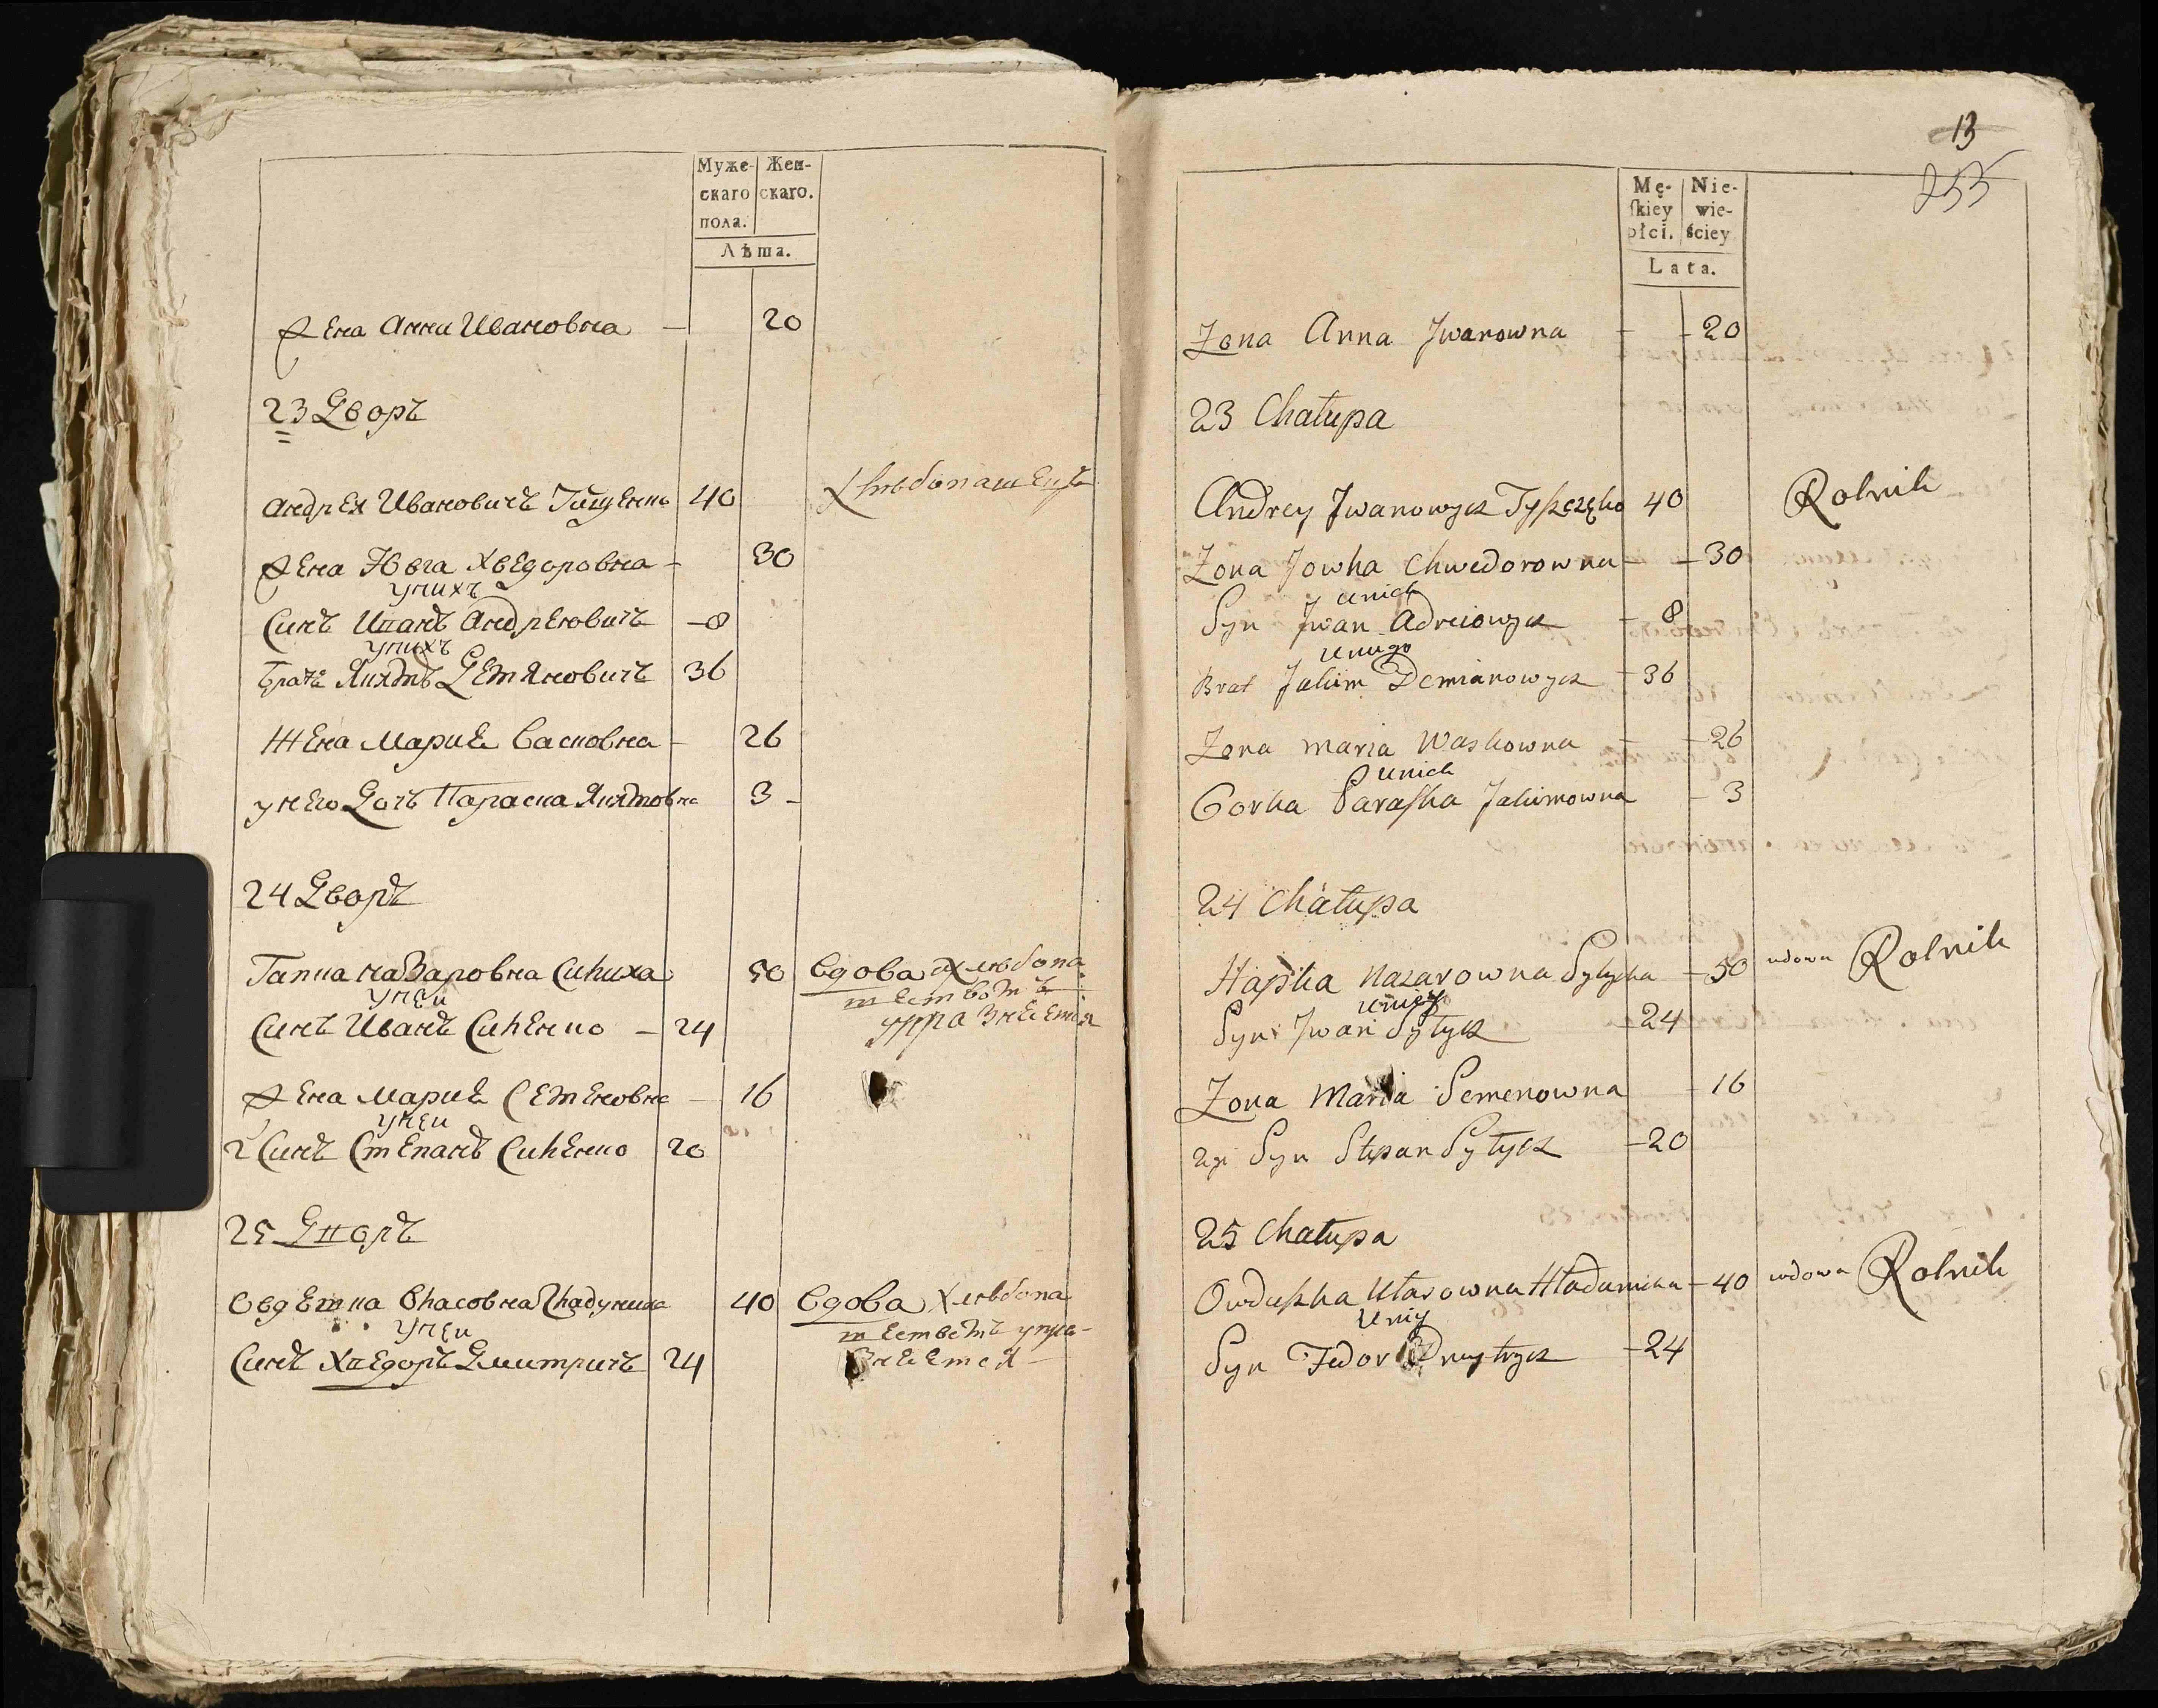 Муже- Жен-
скаго скаго.
пола.
Лѣта.
Жена Анна Ивановна — 20
23 Дворъ
Андрей Ивановичъ Тищенко 40 Хлѣбопашецъ
Жена Ювга Хведоровна — 30
унихъ
Синъ Иванъ Андреовичъ — 8
унихъ
Братъ Якимъ Демяновичъ 36
Жена Марие Васковна — 26
унего Дочь Параска Якимовна 3 -
24 Дворъ
Гапка Назаровна Сиһиха 50 Вдова Хлѣбопа
унеи
шествомъ
Синъ Иванъ Сиһенко — 24
упражнеется
Жена Марие Семеновна — 16
унеи
2 Синъ Степанъ Сиһенко 20
25 Дворъ
Овдешка Власовна Гладунка 40 Вдова Хлѣбопа
унеи
шествомъ упра-
Синъ Хведоръ Дмитричъ 24
жнеется —
13
255
Mę- Nie-
ſkiey wie-
płci. ściey
Lata.
Zona Anna Jwanowna - - 20
23 Chałupa
Andrey Jwanowycz Tyszczęko 40 Rolnik
Zona Jowha Chwedorowna - - 30
unich
Syn Jwan Adreiowycz - 8
unugo
Brat Jakim Demianowycz - 36
Zona maria Waskowna - - 26
unich
Corka Paraska Jakimowna - 3
24 Chałupa
Hapka Nazarowna Sytycha - 50 wdowa Rolnik
uniey
Syn Jwan Sytycz - 24
Zona Maria Semenowna - 16
2gi Syn Stepan Sytycz - 20
25 Chałupa
Owduszka Ułasowna Hładunicha - 40 wdowa Rolnik
uniy
Syn Fedor Dmytrycz - 24